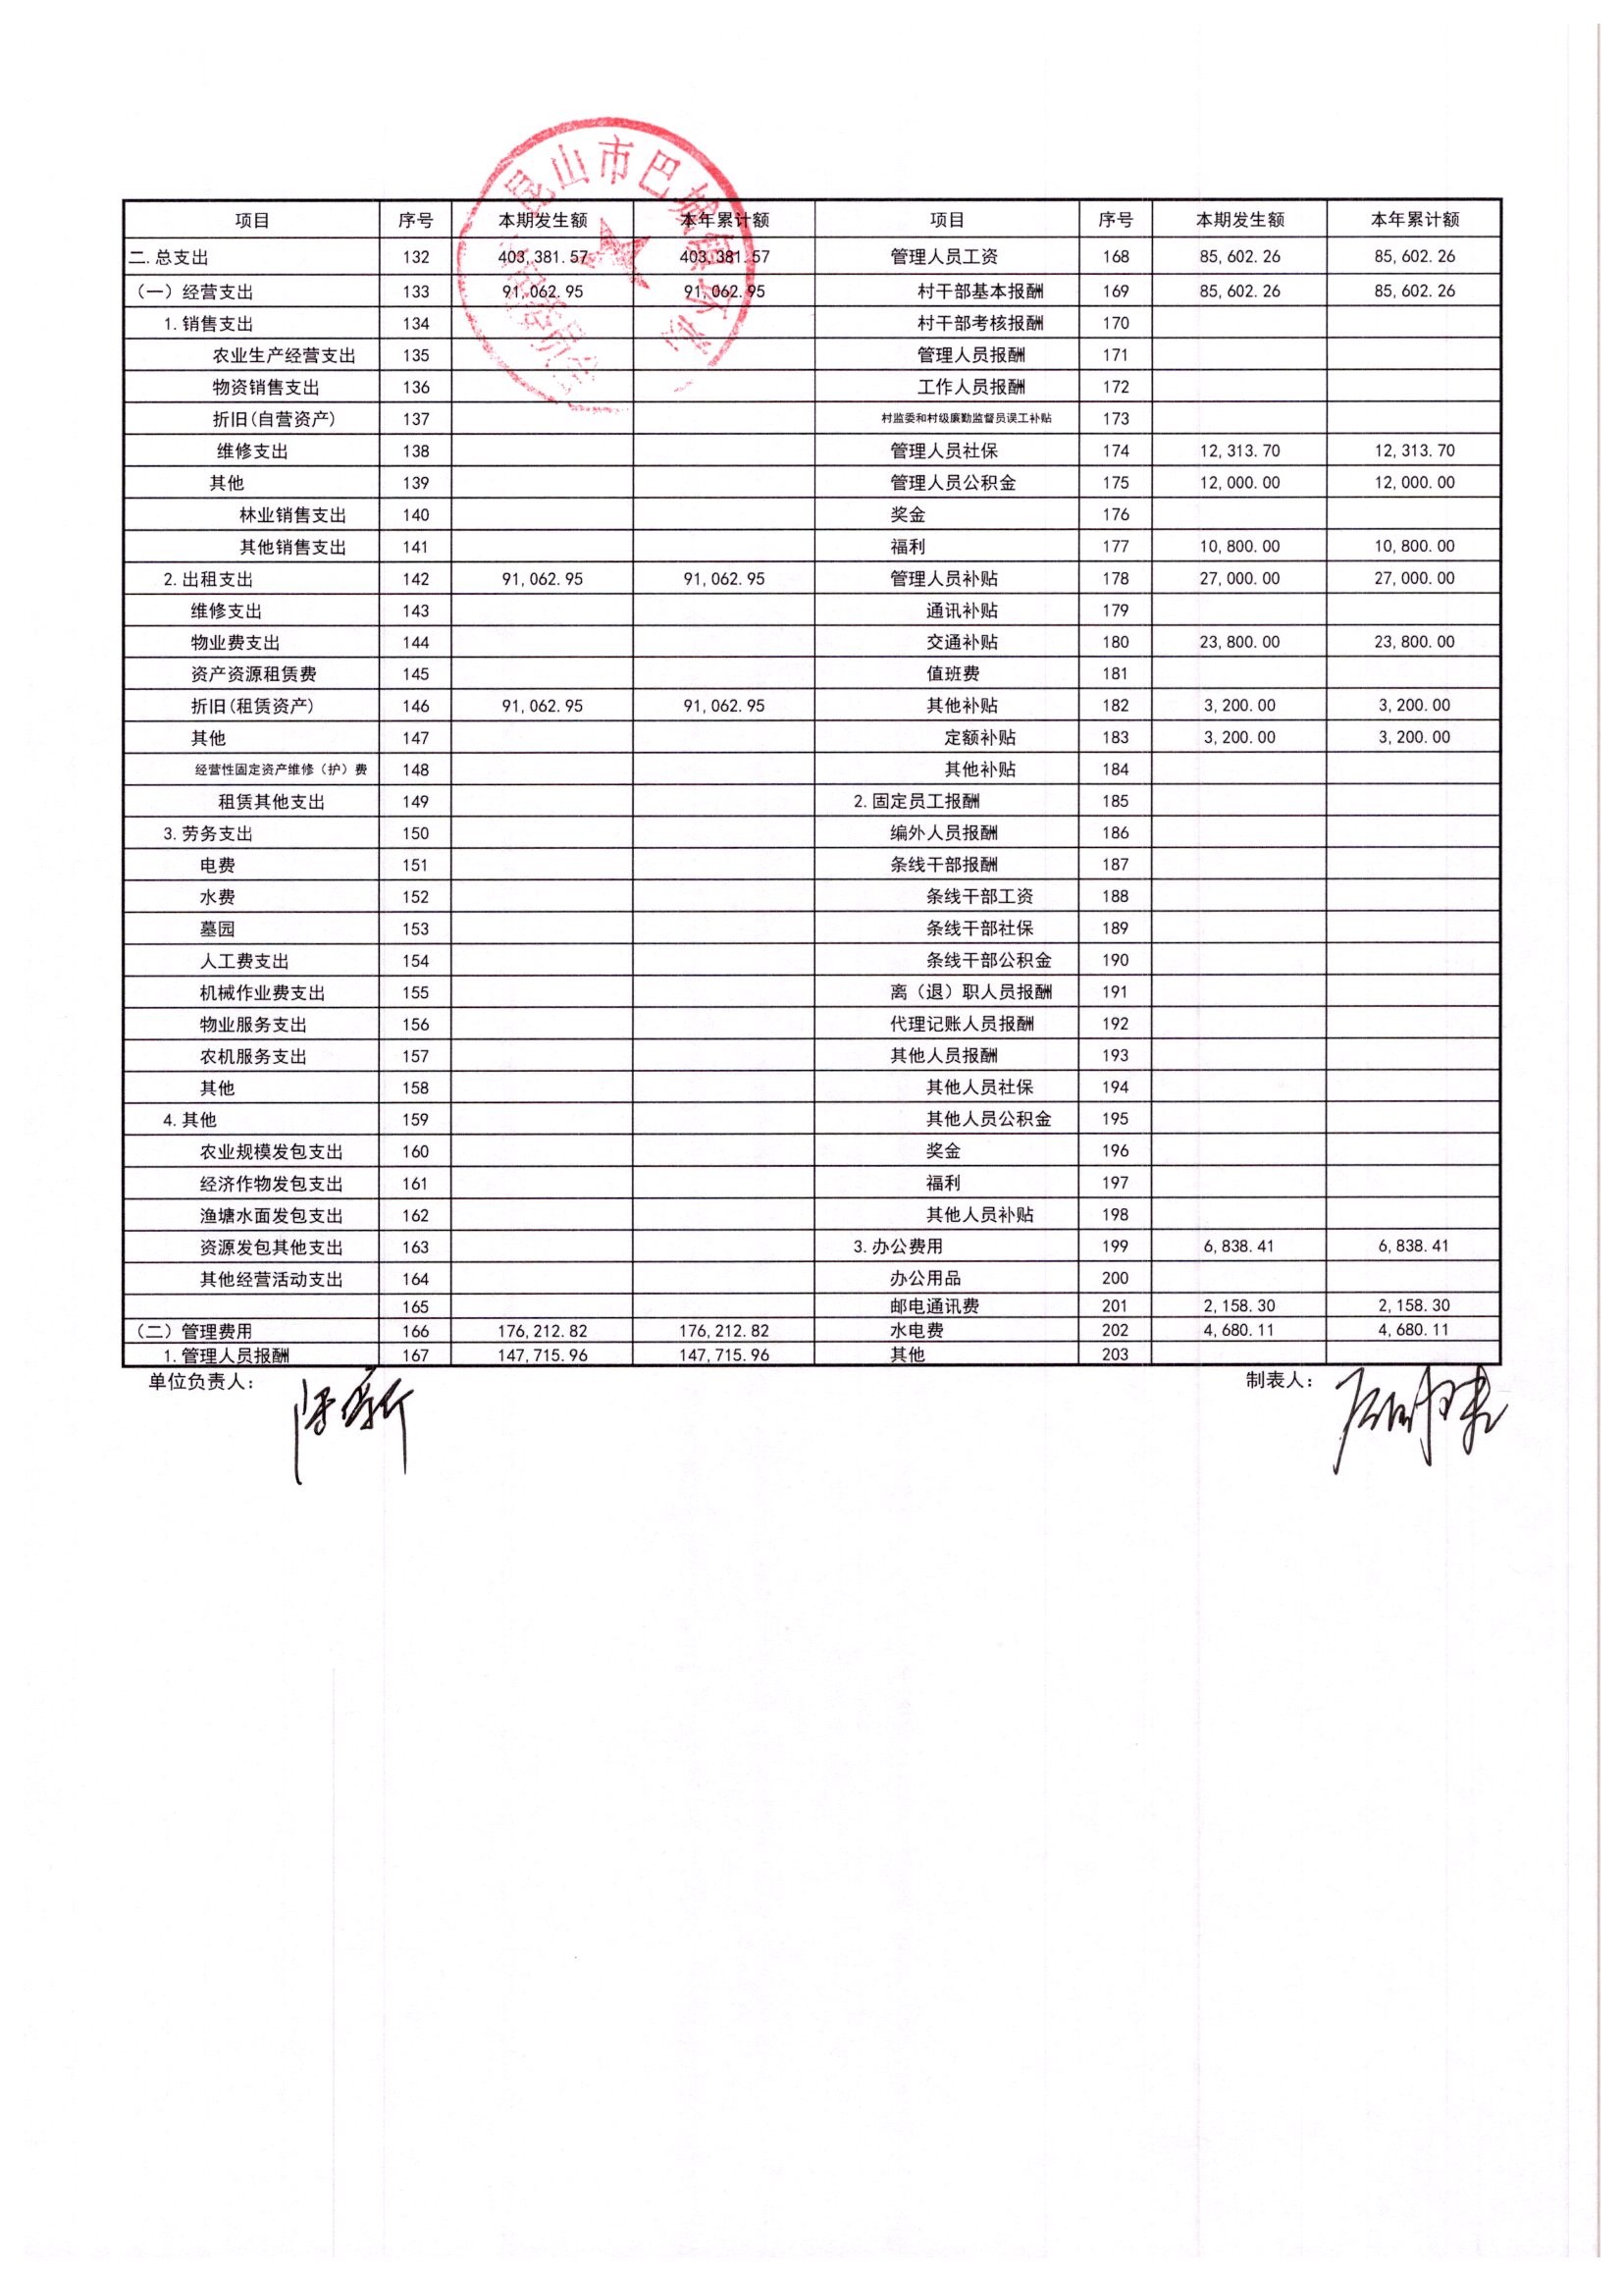 昆山市巴城镇
项目 序号 本期发生额 本年累计额 项目 序号 本期发生额 本年累计额
二.总支出 132 403,381.57 403,381.57 管理人员工资 168 85,602.26 85,602.26
（一）经营支出 133 91,062.95 91,062.95 村干部基本报酬 169 85,602.26 85,602.26
1.销售支出 134 村干部考核报酬 170
农业生产经营支出 135 管理人员报酬 171
物资销售支出 136 工作人员报酬 172
折旧(自营资产) 137 村监委和村级廉勤监督员误工补贴 173
维修支出 138 管理人员社保 174 12,313.70 12,313.70
其他 139 管理人员公积金 175 12,000.00 12,000.00
林业销售支出 140 奖金 176
其他销售支出 141 福利 177 10,800.00 10,800.00
2.出租支出 142 91,062.95 91,062.95 管理人员补贴 178 27,000.00 27,000.00
维修支出 143 通讯补贴 179
物业费支出 144 交通补贴 180 23,800.00 23,800.00
资产资源租赁费 145 值班费 181
折旧(租赁资产) 146 91,062.95 91,062.95 其他补贴 182 3,200.00 3,200.00
其他 147 定额补贴 183 3,200.00 3,200.00
经营性固定资产维修（护）费 148 其他补贴 184
租赁其他支出 149 2.固定员工报酬 185
3.劳务支出 150 编外人员报酬 186
电费 151 条线干部报酬 187
水费 152 条线干部工资 188
墓园 153 条线干部社保 189
人工费支出 154 条线干部公积金 190
机械作业费支出 155 离（退）职人员报酬 191
物业服务支出 156 代理记账人员报酬 192
农机服务支出 157 其他人员报酬 193
其他 158 其他人员社保 194
4.其他 159 其他人员公积金 195
农业规模发包支出 160 奖金 196
经济作物发包支出 161 福利 197
渔塘水面发包支出 162 其他人员补贴 198
资源发包其他支出 163 3.办公费用 199 6,838.41 6,838.41
其他经营活动支出 164 办公用品 200
165 邮电通讯费 201 2,158.30 2,158.30
（二）管理费用 166 176,212.82 176,212.82 水电费 202 4,680.11 4,680.11
1.管理人员报酬 167 147,715.96 147,715.96 其他 203
单位负责人： 制表人：